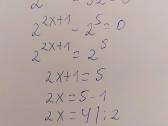 2^{2x+1} - 2^5 = 0
2^{2x+1} = 2^5
2x+1 = 5
2x = 5-1
2x = 4 | :2